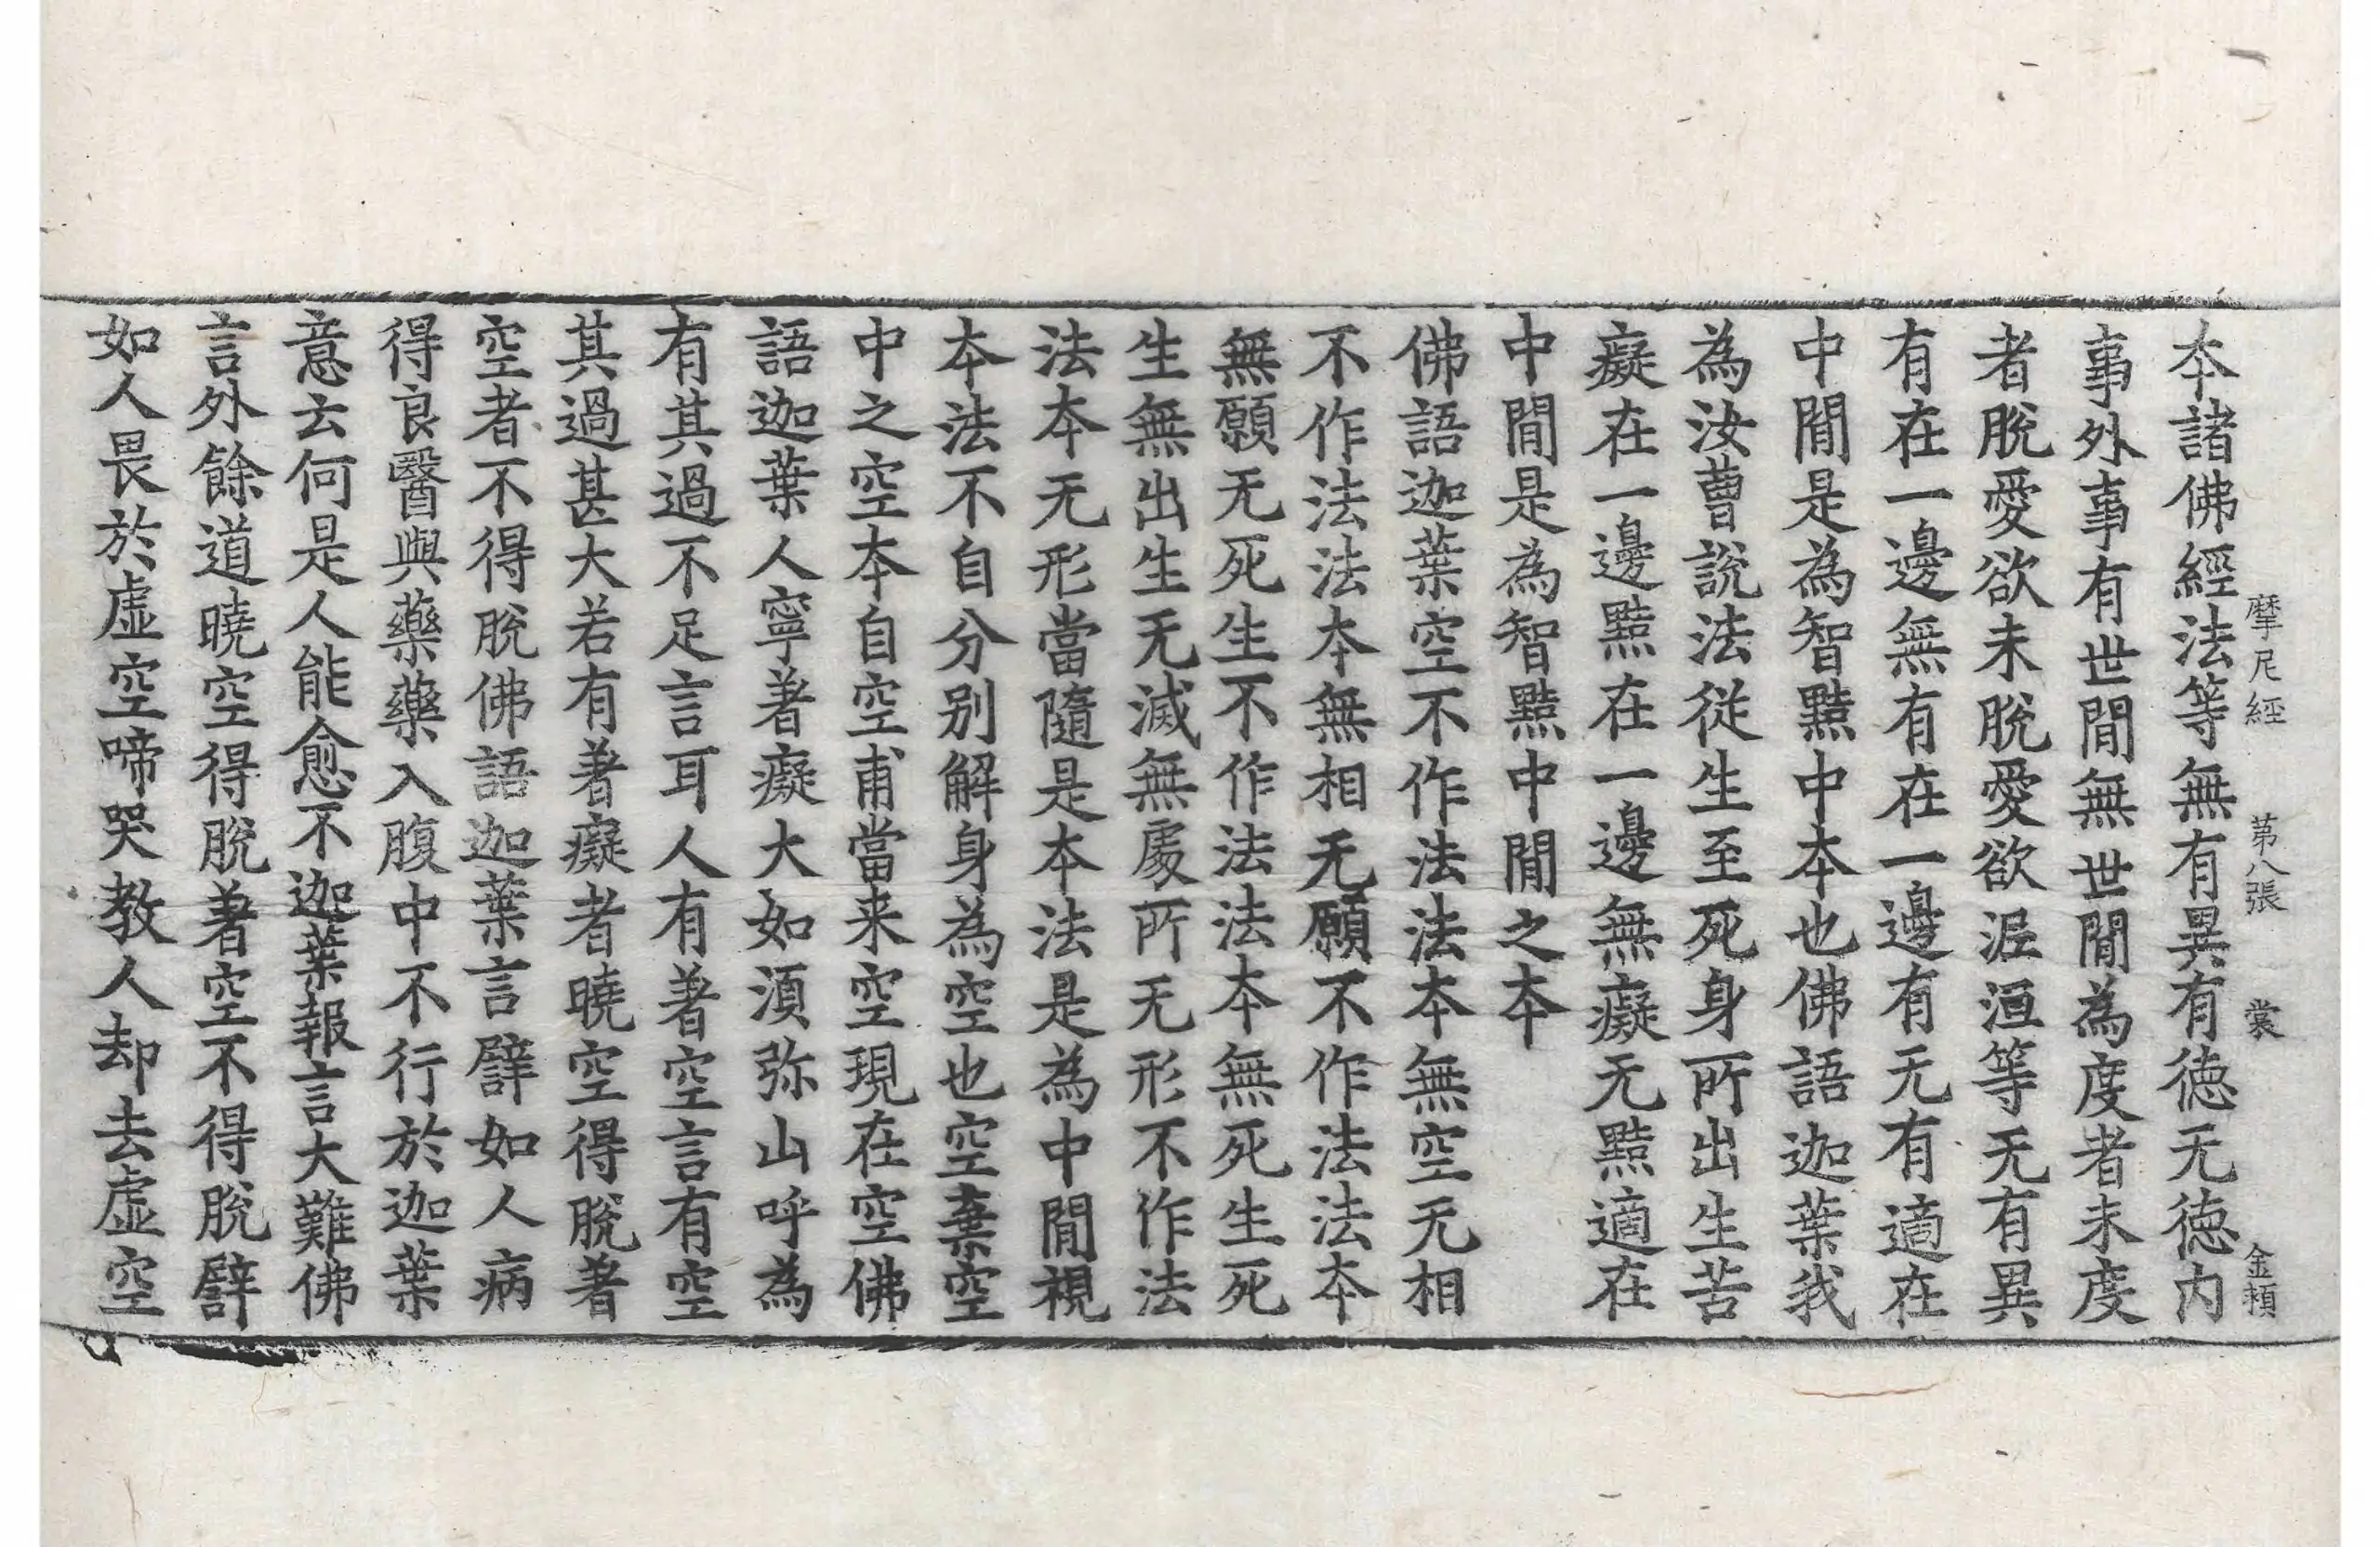 摩尼經 第八張 裳 金
本諸佛經法等無有異有德无德內
事外事有世間無世間為度者未度
者脫愛欲未脫愛欲泥洹等无有異
有在一邊無有在一邊有无有適在
中間是為智黠中本也佛語迦葉我
為汝曹說法從生至死身所出生苦
癡在一邊黠在一邊無癡无黠適在
中間是為智黠中間之本
佛語迦葉空不作法法本無空无相
不作法法本無相无願不作法法本
無願无死生不作法法本無死生死
生無出生无滅無處所无形不作法
法本无形當隨是本法是為中間視
本法不自分別解身為空也空棄空
中之空本自空甫當来空現在空佛
語迦葉人寧著癡大如湏弥山呼為
有其過不足言耳人有著空言有空
其過甚大若有著癡者曉空得脫著
空者不得脫佛語迦葉言譬如人病
得良醫與藥藥入腹中不行於迦葉
意云何是人能愈不迦葉報言大難佛
言外餘道曉空得脫著空不得脫譬
如人畏於虛空啼哭教人却去虛空